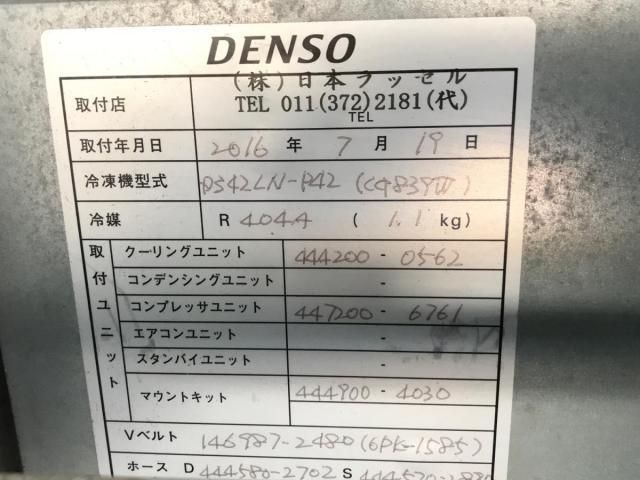 DENSO
取付店 (株)日本ラッセル
TEL 011(372)2181(代)
TEL
取付年月日 2016 年 7 月 19 日
冷凍機型式 DS42LN-P42 (CG839W)
冷媒 R 404A ( 1.1 kg)
取付ユニット
クーリングユニット 444200 - 0562
コンデンシングユニット -
コンプレッサユニット 447200 - 6761
エアコンユニット -
スタンバイユニット -
マウントキット 444900 - 4030
Vベルト 146987-2480 (6PK-1585)
ホース D 444580-2702 S